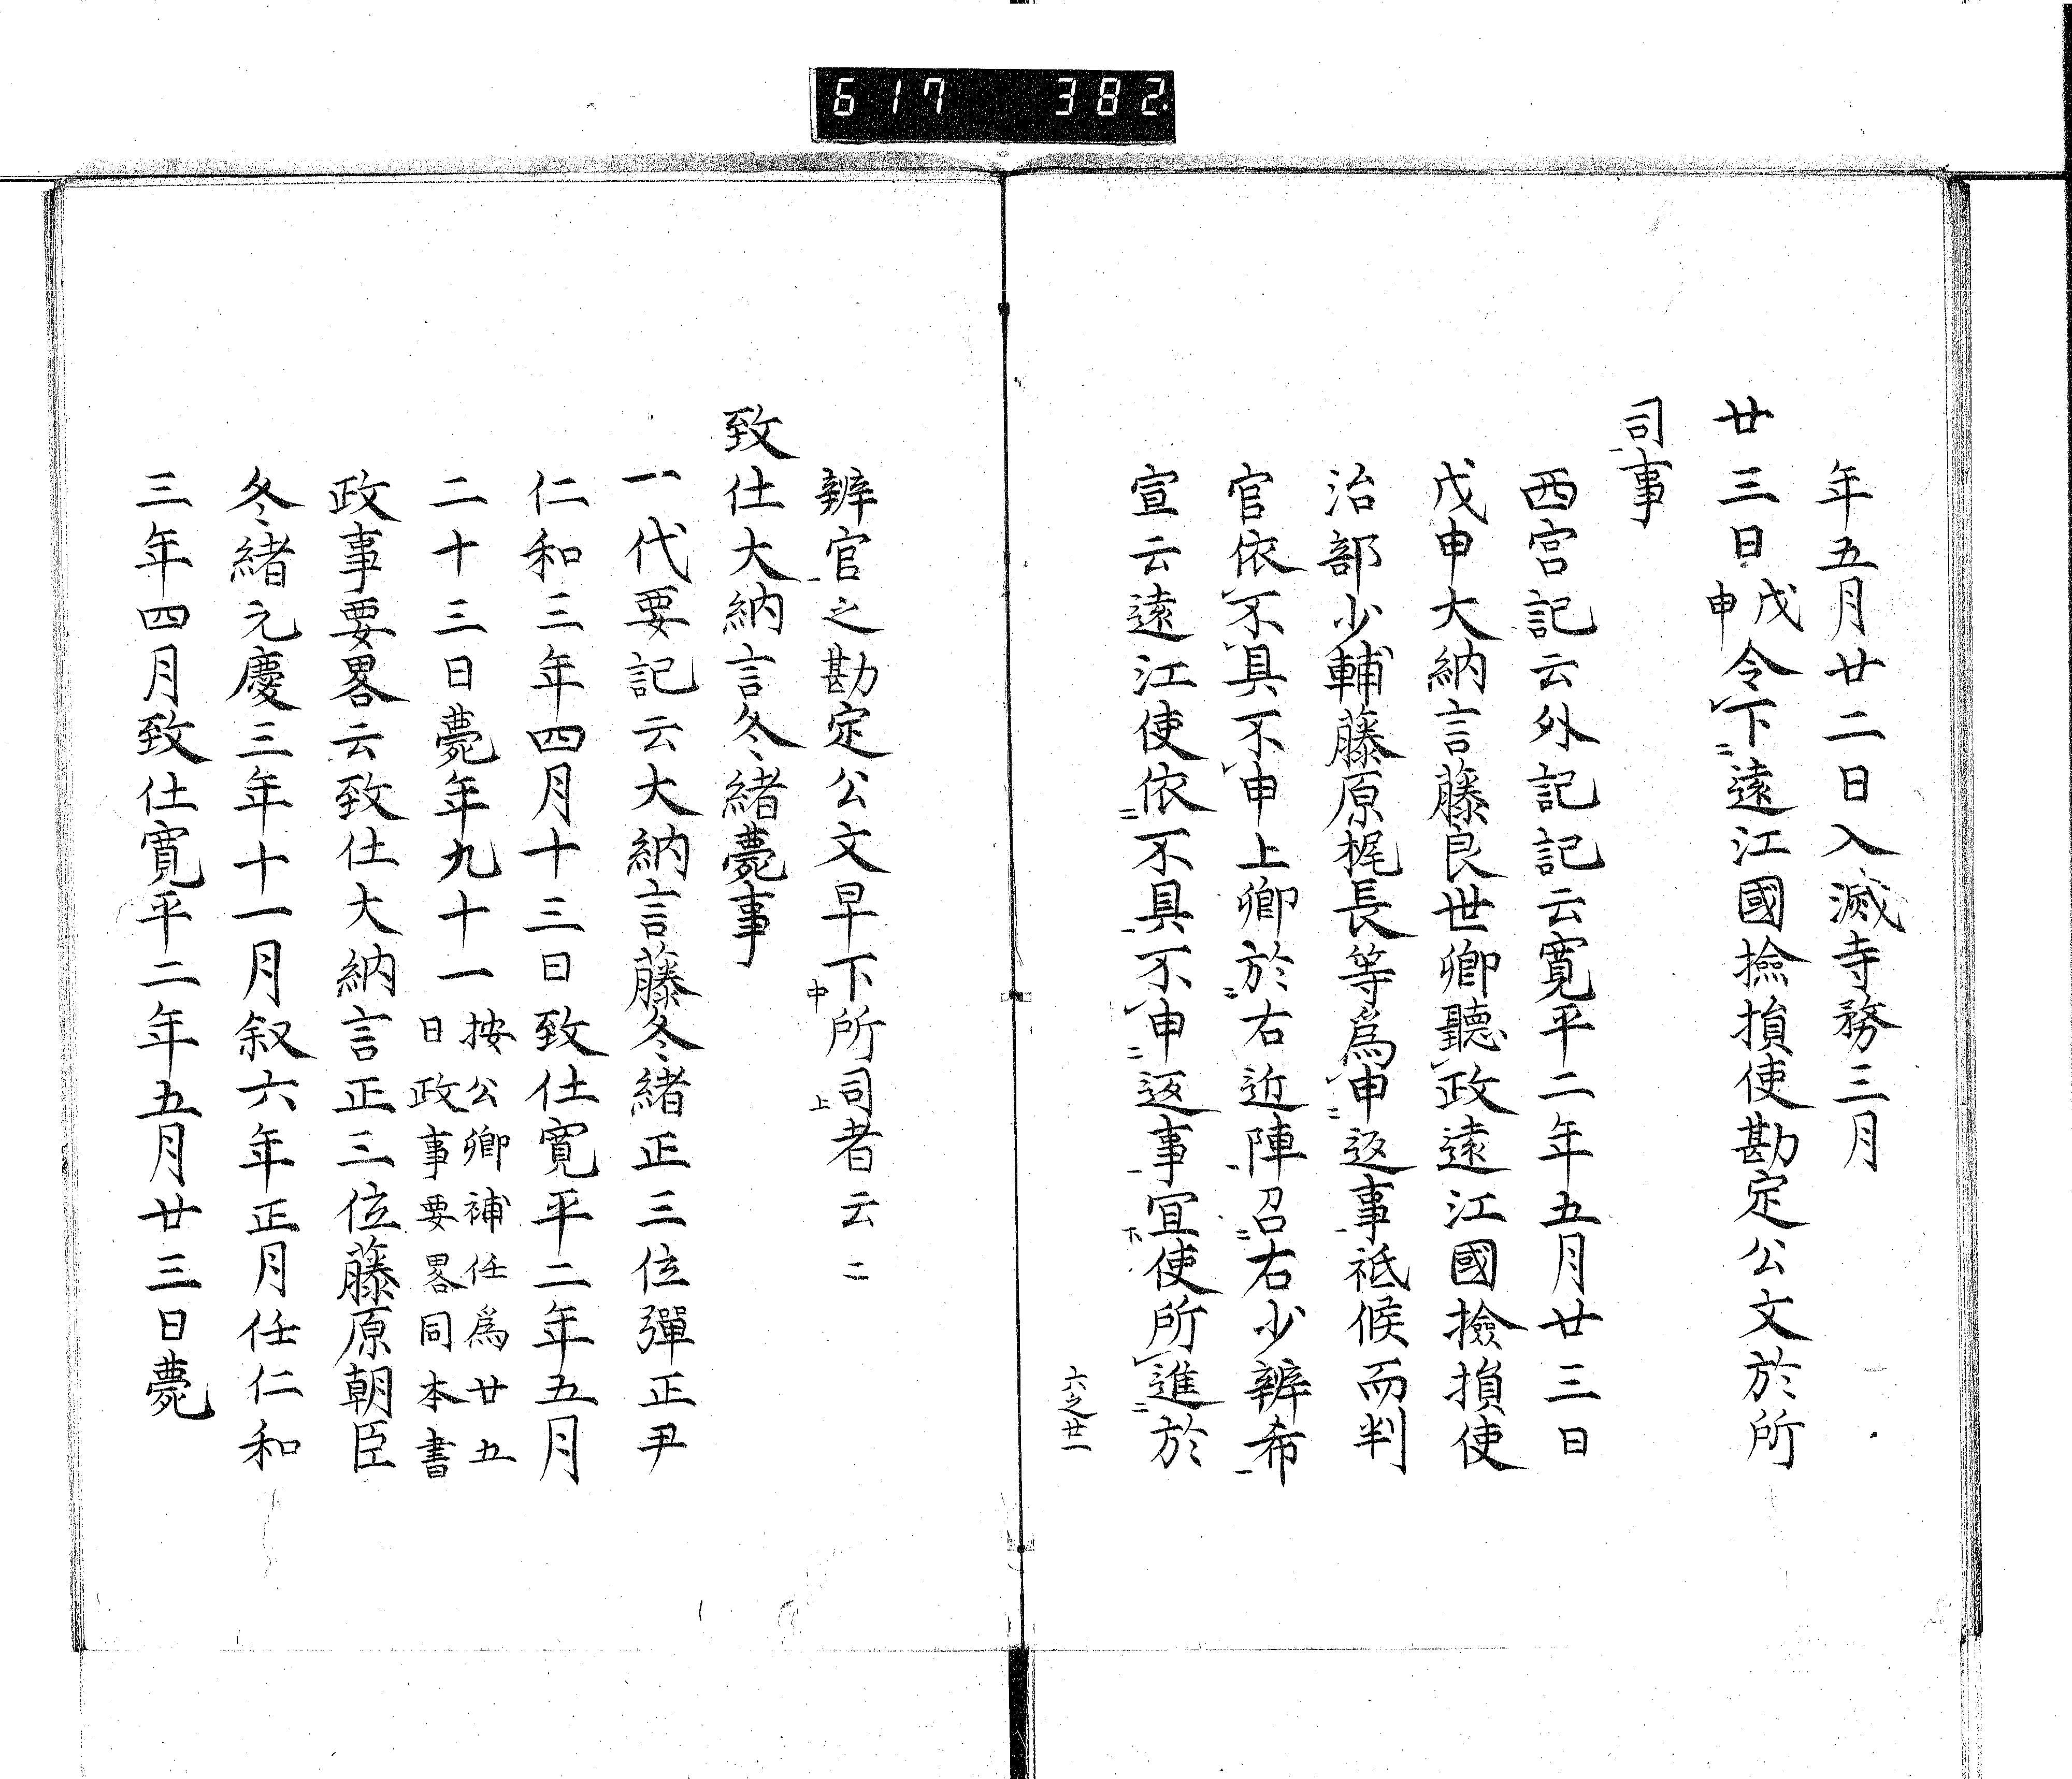 617 382
年五月廿二日入滅寺務三月
廿三日戊申令下遠江國撿損使勘定公文於所
司事
西宮記云外記記云寛平二年五月廿三日
戊申大納言藤良世卿聽政遠江國撿損使
治部少輔藤原梶長等爲申返事祗候而判
官依不具不申上卿於右近陣召右少辨希
宣云遠江使依不具不申返事宜使所進於
六之廿一
辨官之勘定公文早下所司者云〻
致仕大納言冬緒薨事
一代要記云大納言藤冬緒正三位彈正尹
仁和三年四月十三日致仕寛平二年五月
二十三日薨年九十一按公卿補任爲廿五
日政事要畧同本書
政事要畧云致仕大納言正三位藤原朝臣
冬緒元慶三年十一月叙六年正月任仁和
三年四月致仕寛平二年五月廿三日薨